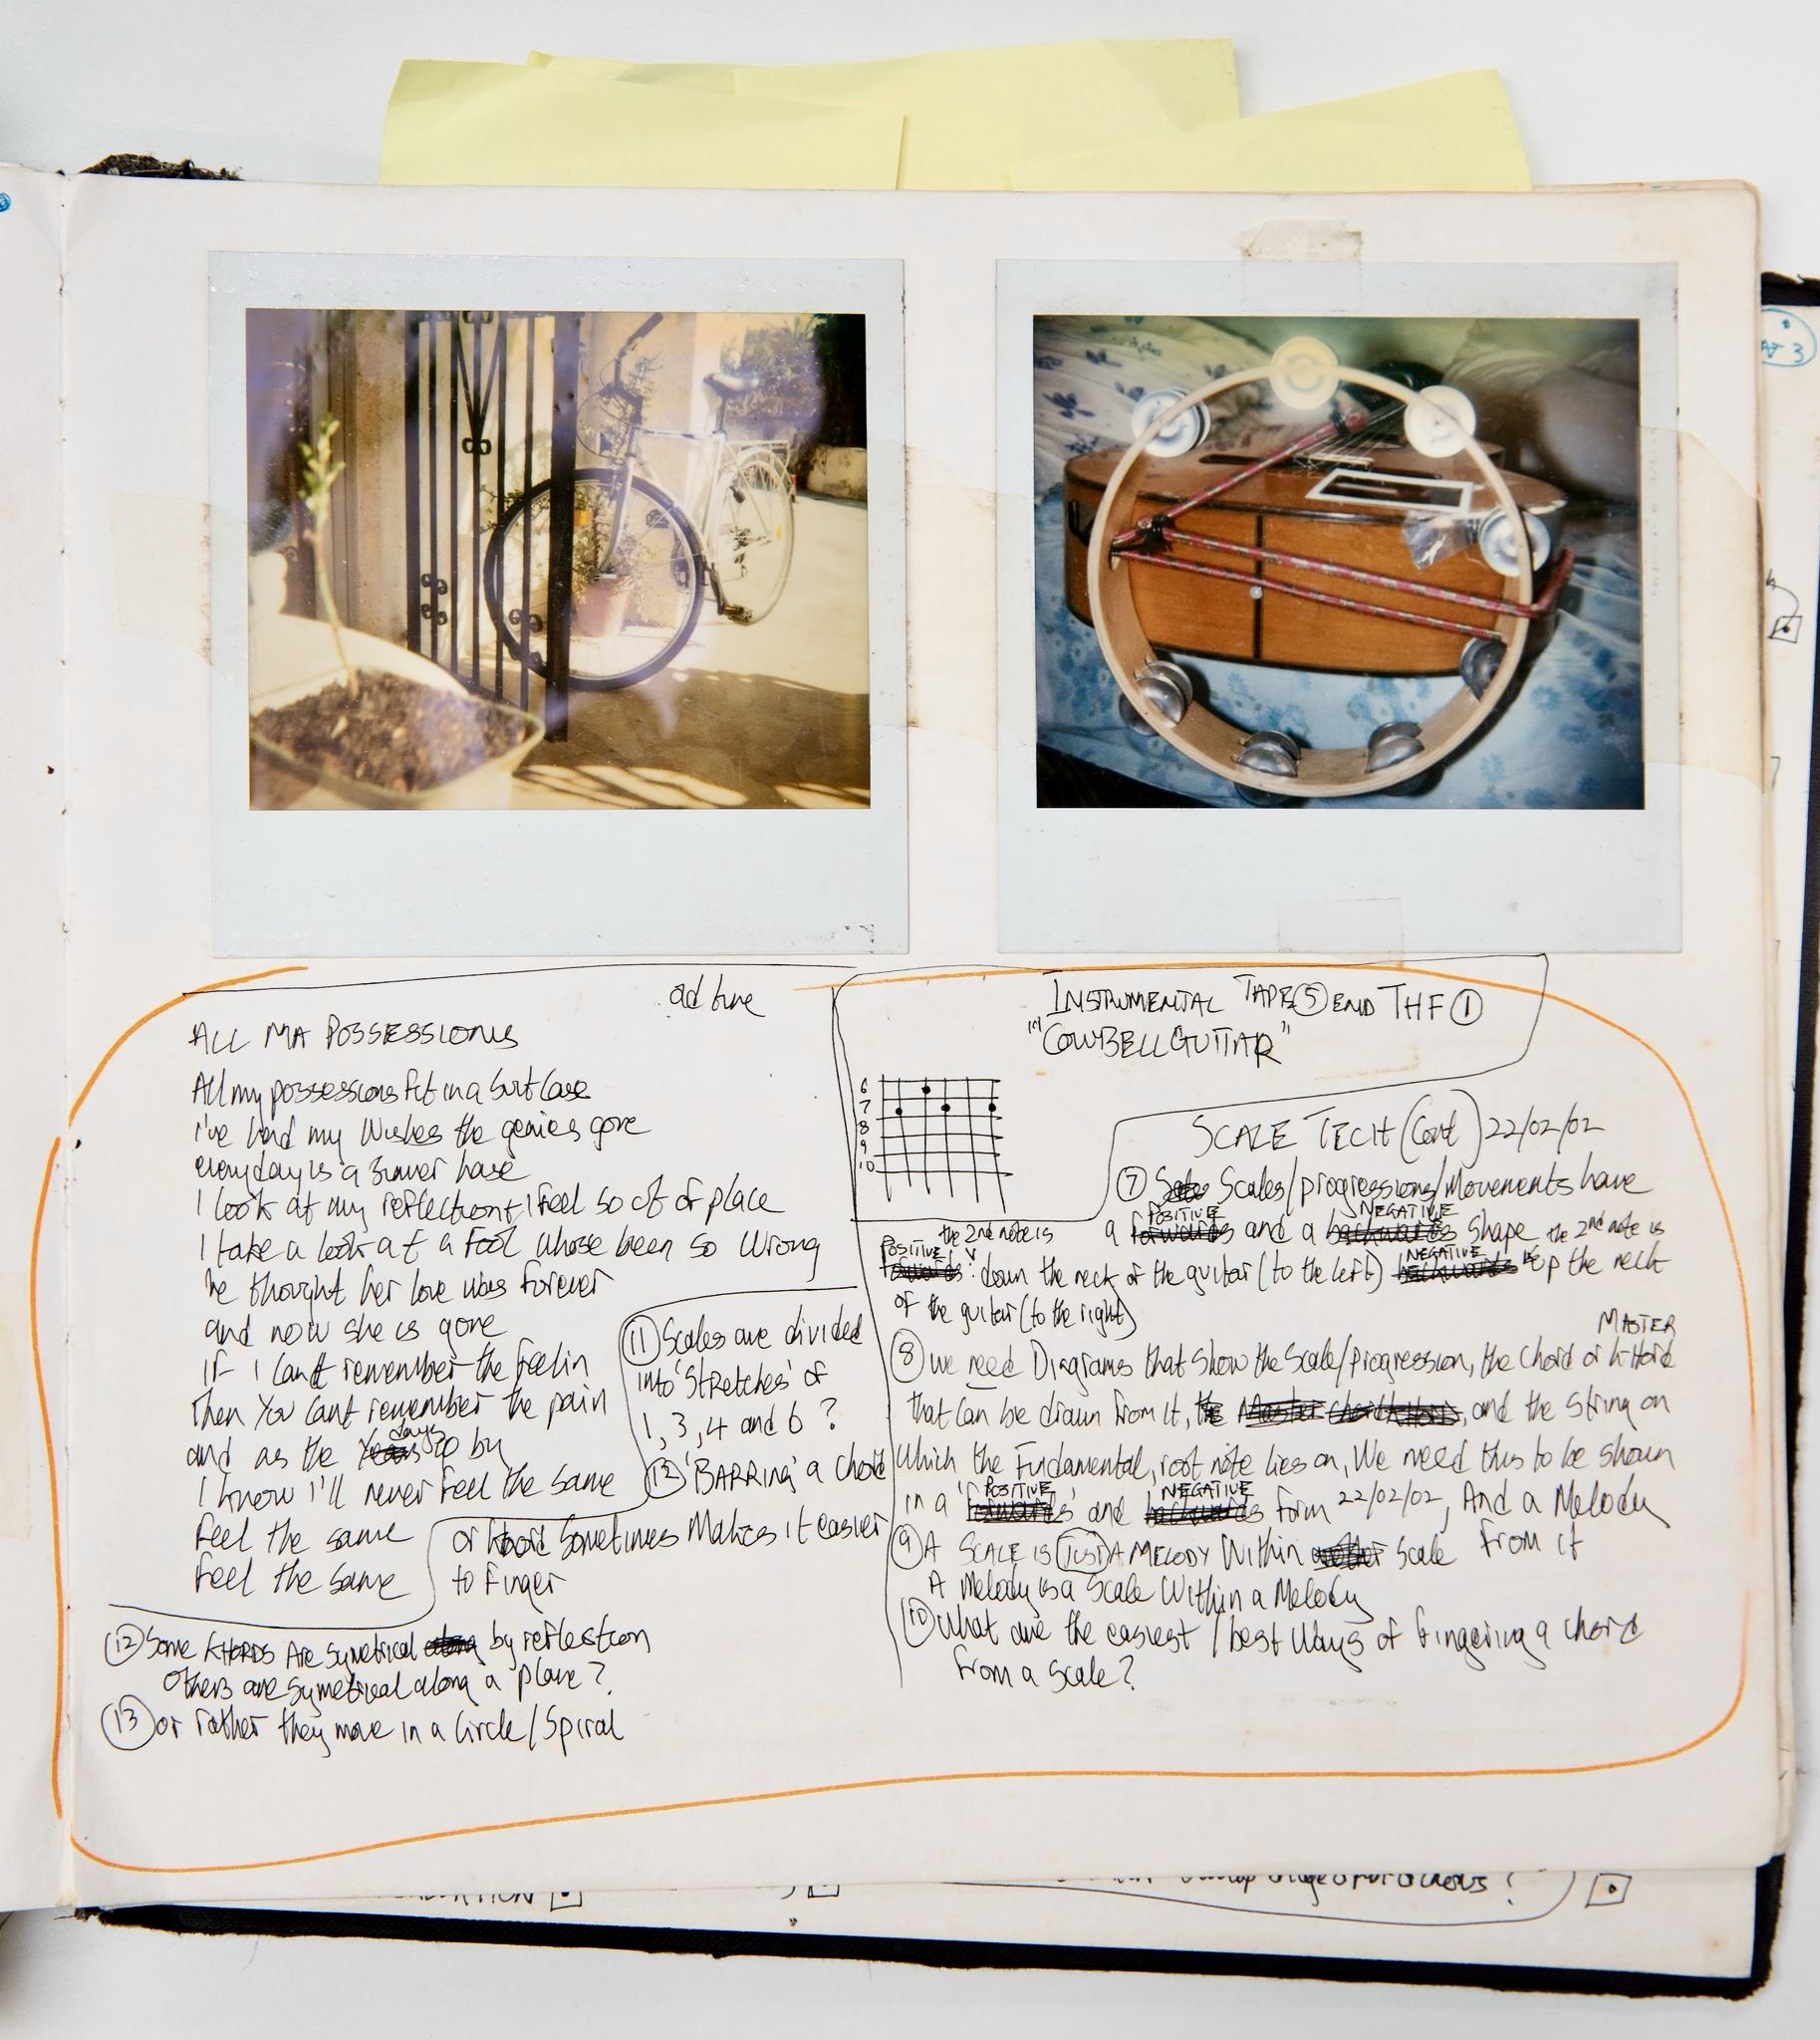 ad tune
ALL MA POSSESSIONS
All my possessions fit in a suitcase
i've had my wishes the genies gone
everyday is a
I look at my reflection, I feel so ot of place
I take a look at a fool whose been so wrong
he thought her love was forever
and now she is gone
If I can't remember the feelin
then you cant remember the pain
and as the days go by
I know i'll never feel the same
feel the same
feel the same
⑪ Scales are divided
into 'Stretches' of
1, 3, 4 and 6 ?
⑫ 'BARRING' a chord
or khord sometimes makes it easier
to finger
⑫ Some KHORDS Are Symetrical by reflection
Others are symetrical along a plane?
⑬ or rather they move in a circle/spiral
INSTRUMENTAL TAPE ⑤ END THF ①
in "COWBELL GUITTAR"
6
7
8
9
10
SCALE TECH (Cont) 22/02/02
⑦ Scales/progressions/movements have
a POSITIVE and a NEGATIVE shape the 2nd note is
POSITIVE: the 2nd note is down the neck of the guitar (to the left) NEGATIVE is up the neck
of the guitar (to the right)
MASTER
⑧ we need Diagrams that show the scale/progression, the chord or k-Hord
that can be drawn from it, and the string on
which the Fundamental, root note lies on, We need this to be shown
in a 'POSITIVE' and NEGATIVE form 22/02/02, And a Melody
from it
⑨ A SCALE IS JUST A MELODY within scale
A Melody is a Scale Within a Melody
⑩ What are the easiest / best ways of fingering a chord
from a scale?